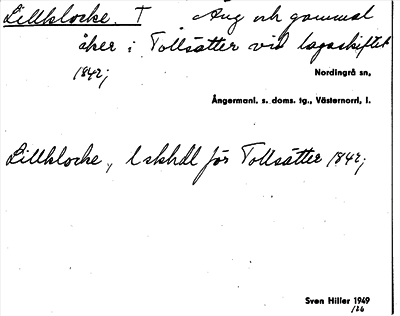 Lillklocke. T Äng och gammal
åker i Tollsätter vid lagaskiftet
1842;
Nordingrå sn,
Ångermanl. s. doms. tg., Västernorrl, l.
Lillklocke, l skhdl för Tollsätter 1842;
Sven Hiller 1949
/26